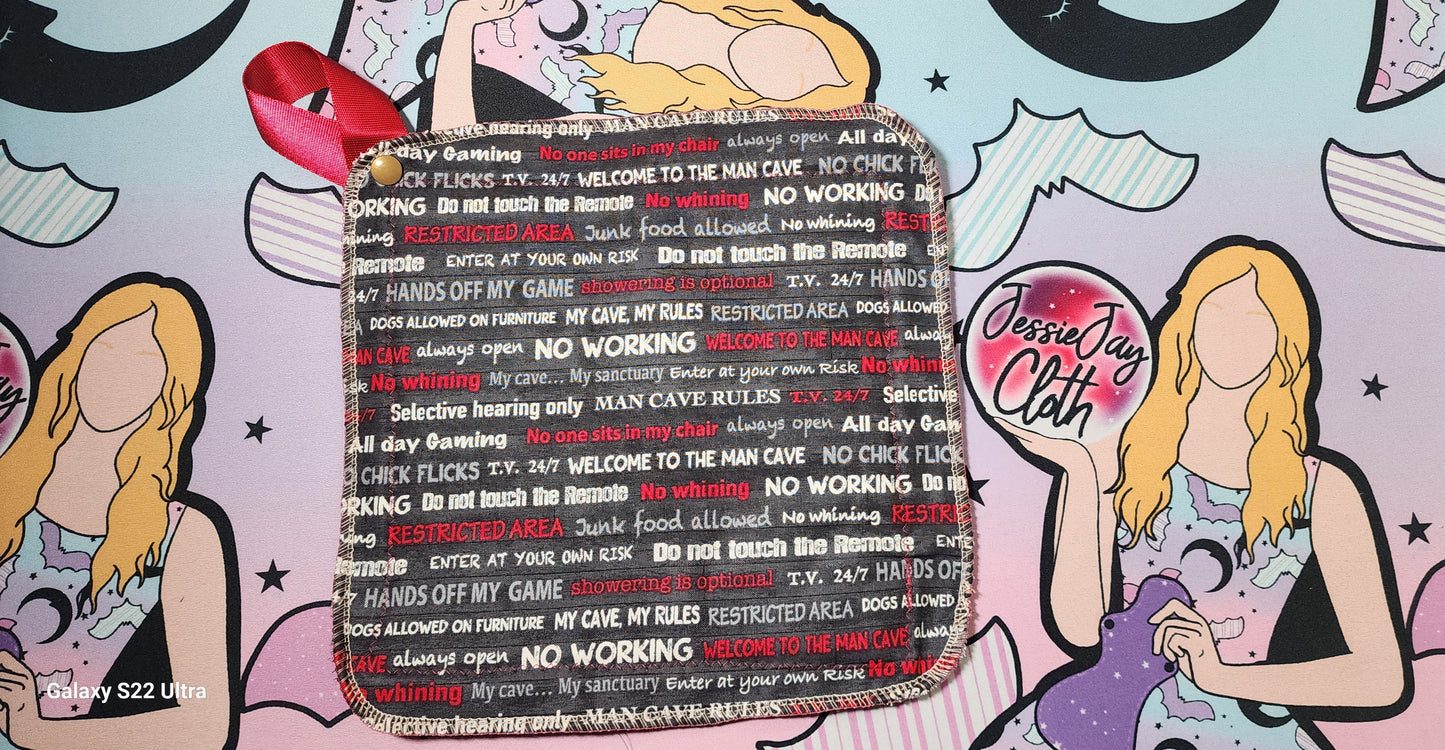 ive hearing only MAN CAVE RULES
day Gaming No one sits in my chair always open All day
CK FLICKS T.V. 24/7 WELCOME TO THE MAN CAVE NO CHICK FL
ORKING Do not touch the Remote No whining NO WORKING Do
ning RESTRICTED AREA Junk food allowed No whining REST
Remote ENTER AT YOUR OWN RISK Do not touch the Remote
24/7 HANDS OFF MY GAME showering is optional T.V. 24/7 HANDS O
A DOGS ALLOWED ON FURNITURE MY CAVE, MY RULES RESTRICTED AREA DOGS ALLOWED
AN CAVE always open NO WORKING WELCOME TO THE MAN CAVE alwa
sk No whining My cave... My sanctuary Enter at your own Risk No whin
/7 Selective hearing only MAN CAVE RULES T.V. 24/7 Selective
All day Gaming No one sits in my chair always open All day Gam
CHICK FLICKS T.V. 24/7 WELCOME TO THE MAN CAVE NO CHICK FLICK
RKING Do not touch the Remote No whining NO WORKING Do no
ng RESTRICTED AREA Junk food allowed No whining RESTRI
emote ENTER AT YOUR OWN RISK Do not touch the Remote ENTE
7 HANDS OFF MY GAME showering is optional T.V. 24/7 HANDS OF
DOGS ALLOWED ON FURNITURE MY CAVE, MY RULES RESTRICTED AREA DOGS ALLOWED
CAVE always open NO WORKING WELCOME TO THE MAN CAVE alway
whining My cave... My sanctuary Enter at your own Risk No whi
lective hearing only MAN CAVE RULES
JessieJay
Cloth
Galaxy S22 Ultra